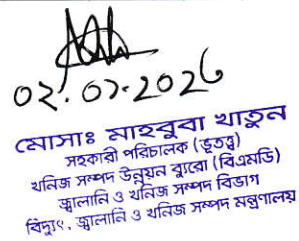 ০২.০৭.2026
মোসাঃ মাহবুবা খাতুন
সহকারী পরিচালক (ভূতত্ত্ব)
খনিজ সম্পদ উন্নয়ন ব্যুরো (বিএমডি)
জ্বালানি ও খনিজ সম্পদ বিভাগ
বিদ্যুৎ, জ্বালানি ও খনিজ সম্পদ মন্ত্রণালয়